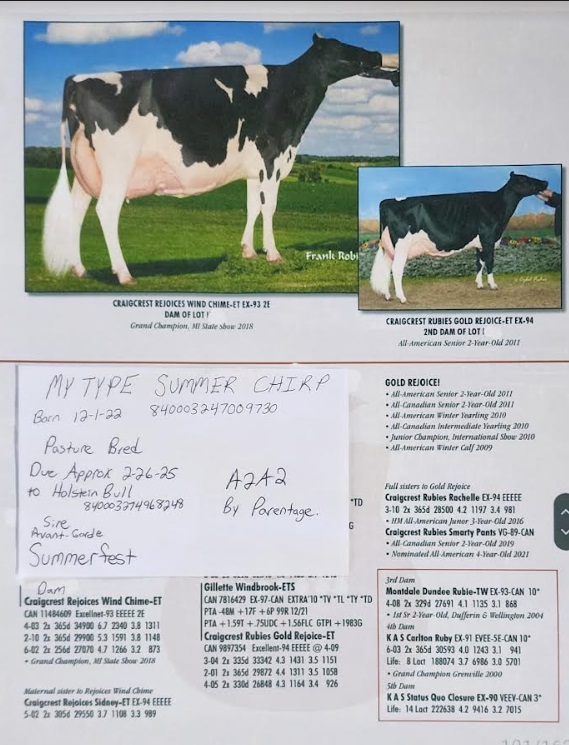 Frank Rob
CRAIGCREST REJOICES WIND CHIME-ET EX-93 2E
DAM OF LOT 1
Grand Champion, MI State Show 2018
CRAIGCREST RUBIES GOLD REJOICE-ET EX-94
2ND DAM OF LOT 1
All-American Senior 2-Year-Old 2011
MY TYPE SUMMER CHIRP
Born 12-1-22 840003247009730
Pasture Bred
Due Approx 2-26-25
to Holstein Bull
840003274968248
A2A2
By Parentage.
Sire
Avant-Garde
Summerfest
*TD
G
Dam
Craigcrest Rejoices Wind Chime-ET
CAN 11484609 Excellent-93 EEEEE 2E
4-03 2x 365d 34900 6.7 2340 3.8 1311
2-10 2x 365d 29900 5.3 1591 3.8 1148
6-02 2x 256d 27070 4.7 1266 3.2 873
• Grand Champion, MI State Show 2018
Maternal sister to Rejoices Wind Chime
Craigcrest Rejoices Sidney-ET EX-94 EEEEE
5-02 2x 305d 29550 3.7 1108 3.3 989
Gillette Windbrook-ETS
CAN 7816429 EX-97-CAN EXTRA'10 *TV *TL *TY *TD
PTA -48M +17F +6P 99R 12/21
PTA +1.59T +.75UDC +1.56FLC GTPI +1983G
Craigcrest Rubies Gold Rejoice-ET
CAN 9897354 Excellent-94 EEEEE @ 4-09
3-04 2x 335d 33342 4.3 1431 3.5 1151
2-01 2x 365d 29872 4.4 1311 3.5 1058
4-05 2x 330d 26848 4.3 1164 3.4 926
GOLD REJOICE!
• All-American Senior 2-Year-Old 2011
• All-Canadian Senior 2-Year-Old 2011
• All-American Winter Yearling 2010
• All-Canadian Intermediate Yearling 2010
• Junior Champion, International Show 2010
• All-American Winter Calf 2009
Full sisters to Gold Rejoice
Craigcrest Rubies Rachelle EX-94 EEEEE
3-10 2x 365d 28500 4.2 1197 3.4 981
• HM All-American Junior 3-Year-Old 2016
Craigcrest Rubies Smarty Pants VG-89-CAN
• All-Canadian Senior 2-Year-Old 2019
• Nominated All-American 4-Year-Old 2021
3rd Dam
Montdale Dundee Rubie-TW EX-93-CAN 10*
4-08 2x 329d 27691 4.1 1135 3.1 868
• 1st Sr 2-Year-Old, Dufferin & Wellington 2004
4th Dam
K A S Carlton Ruby EX-91 EVEE-5E-CAN 10*
6-03 2x 365d 30593 4.0 1243 3.1 941
Life: 8 Lact 188074 3.7 6986 3.0 5701
• Grand Champion Grenville 2000
5th Dam
K A S Status Quo Closure EX-90 VEEV-CAN 3*
Life: 14 Lact 222638 4.2 9416 3.2 7015